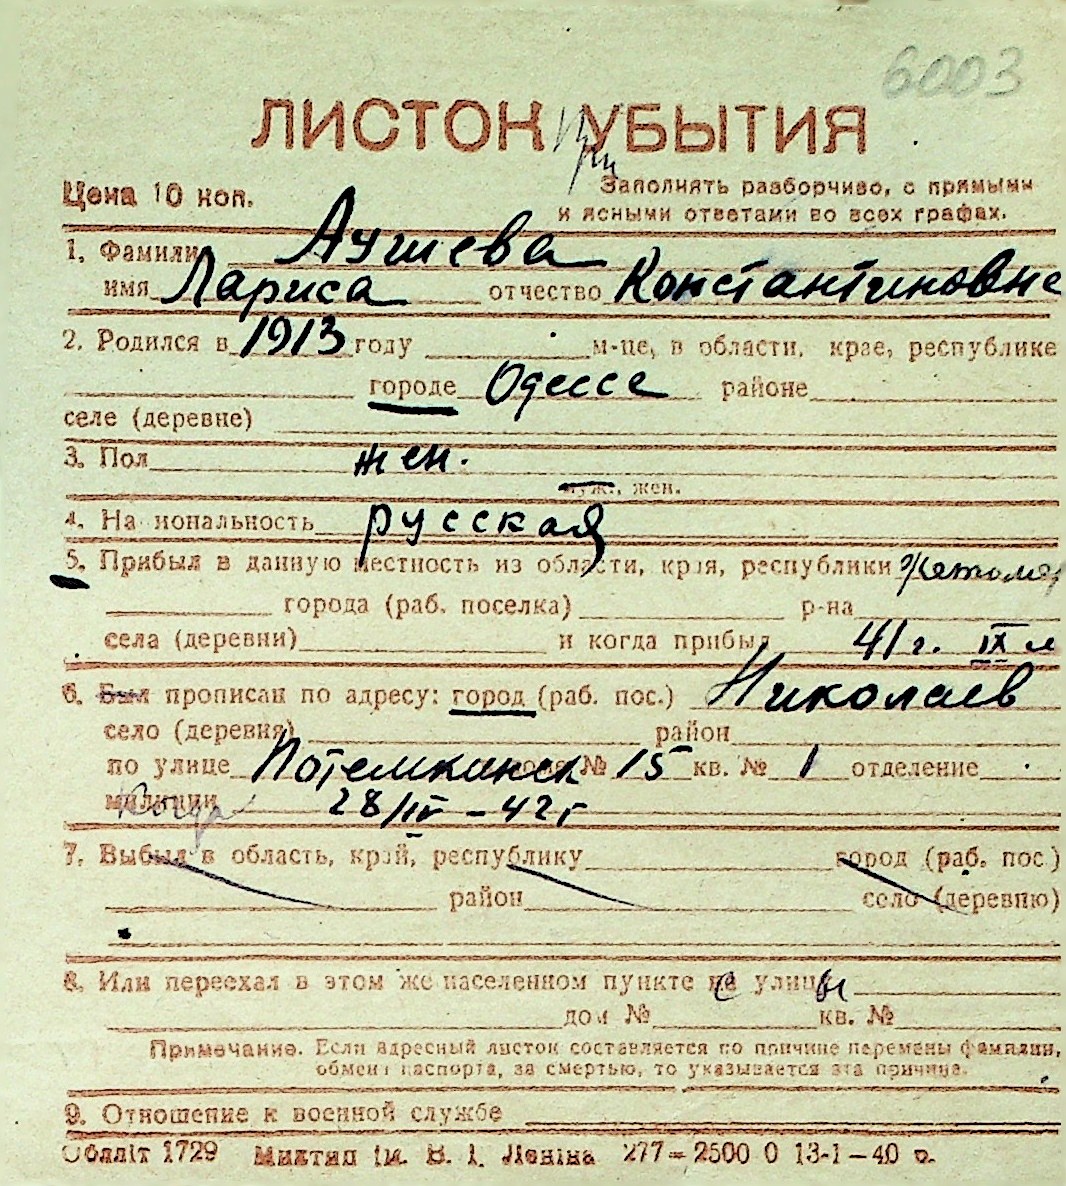 6003
ЛИСТОК При УБЫТИЯ
Цена 10 коп.
Заполнять разборчиво, с прямыми
и ясными ответами во всех графах.
1. Фамилия Аушева
имя Лариса отчество Константиновна
2. Родился в 1913 году м-це, в области, крае, республике
городе Одессе районе
селе (деревне)
3. Пол жен.
муж., жен.
4. На иональность русская
5. Прибыл в данную местность из области, края, республики Житомир
города (раб. поселка) р-на
села (деревни) и когда прибыл 41 г. IX м
6. Был прописан по адресу: город (раб. пос.) Николаев
село (деревня) район
по улице Потемкинск дома № 15 кв. № 1 отделение
милиции Когда 28/IV – 42 г
7. Выбыл в область, край, республику город (раб. пос.)
район село (деревню)
8. Или переехал в этом же населенном пункте с улицы
дом № кв. №
Примечание. Если адресный листок составляется по причине перемены фамилии,
обмена паспорта, за смертью, то указывается эта причина.
9. Отношение к военной службе
Обллiт 1729 Миктип iм. В. I. Ленiна 277–2500 0 13-1–40 р.